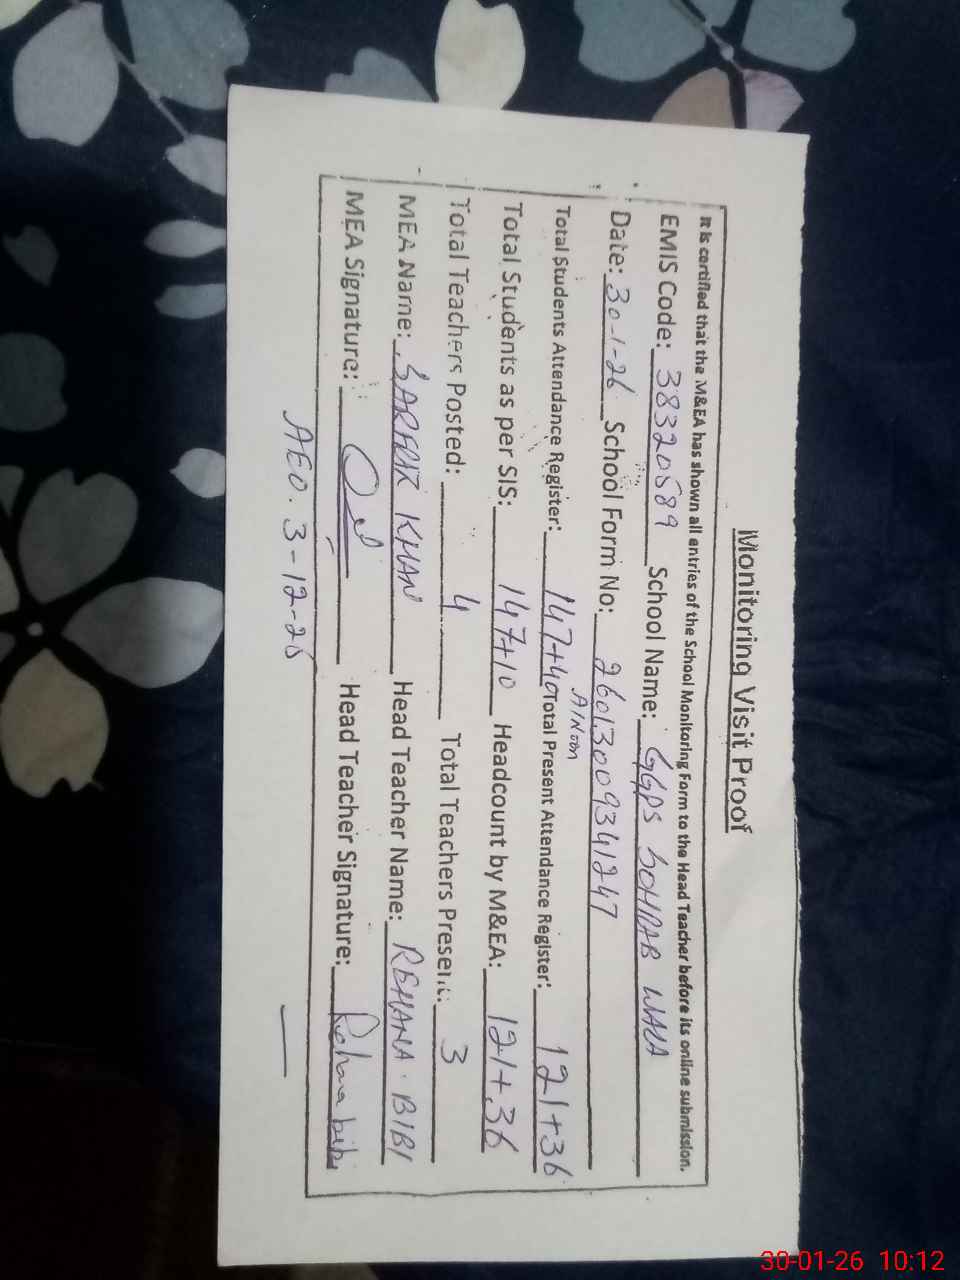 Monitoring Visit Proof
It is certified that the M&EA has shown all entries of the School Monitoring Form to the Head Teacher before its online submission.
EMIS Code: 38320589 School Name: GGPS SOHRAB WALA
Date: 30-1-26 School Form No: 26013009341247
Total Students Attendance Register: 147+40 Total Present Attendance Register: 121+36
Total Students as per SIS: 147+10 Headcount by M&EA: 121+36
Total Teachers Posted: 4 Total Teachers Present: 3
MEA Name: SARFRAZ KHAN Head Teacher Name: REHANA BIBI
MEA Signature: Head Teacher Signature: Rehana bibi
AEO. 3-12-25
30-01-26 10:12